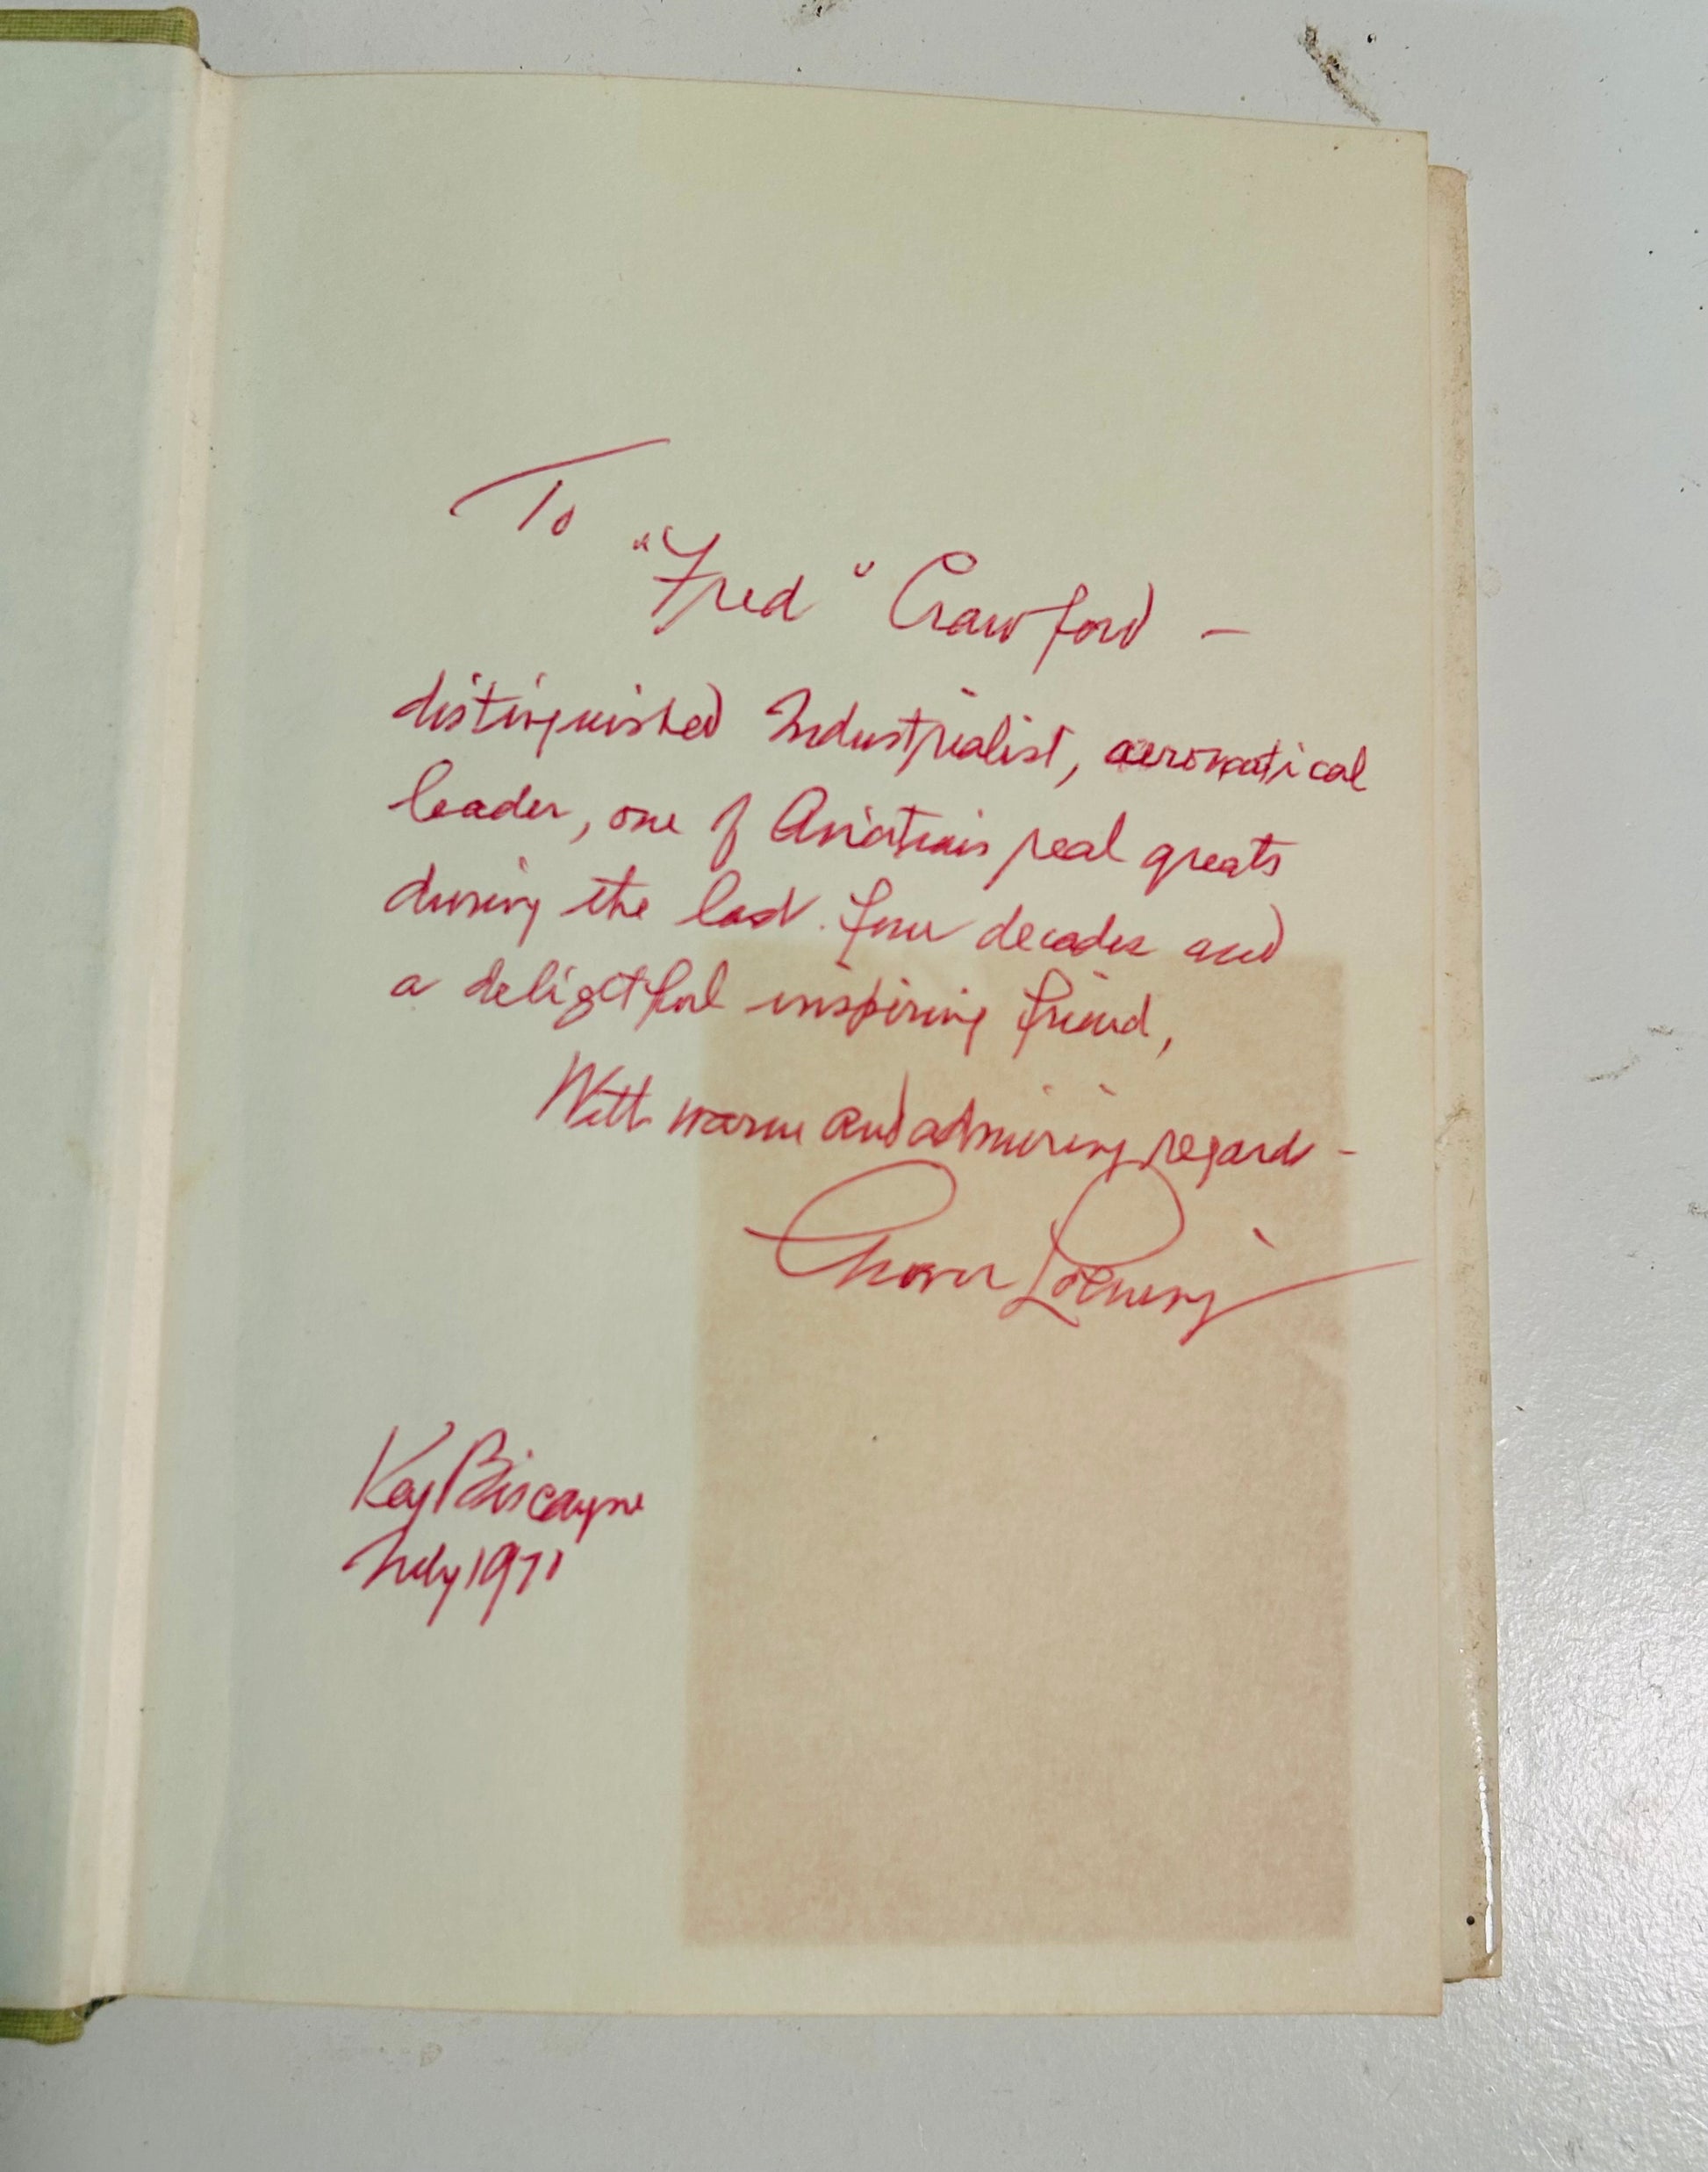 To
"Fred" Crawford –
distinguished Industrialist, aeronautical
leader, one of Aviation's real greats
during the last four decades and
a delightful inspiring friend,
With warm and admiring regards –
Grover Loening
Key Biscayne
July 1971